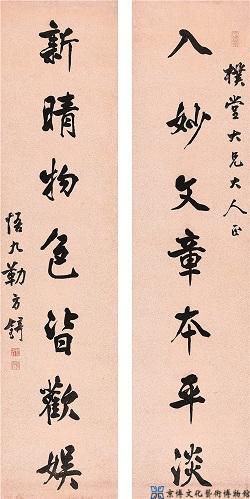 樸堂大兄大人正
入妙文章本平淡
新晴物色皆歡娛
悟九勒方錡
京傳文化藝術博物館